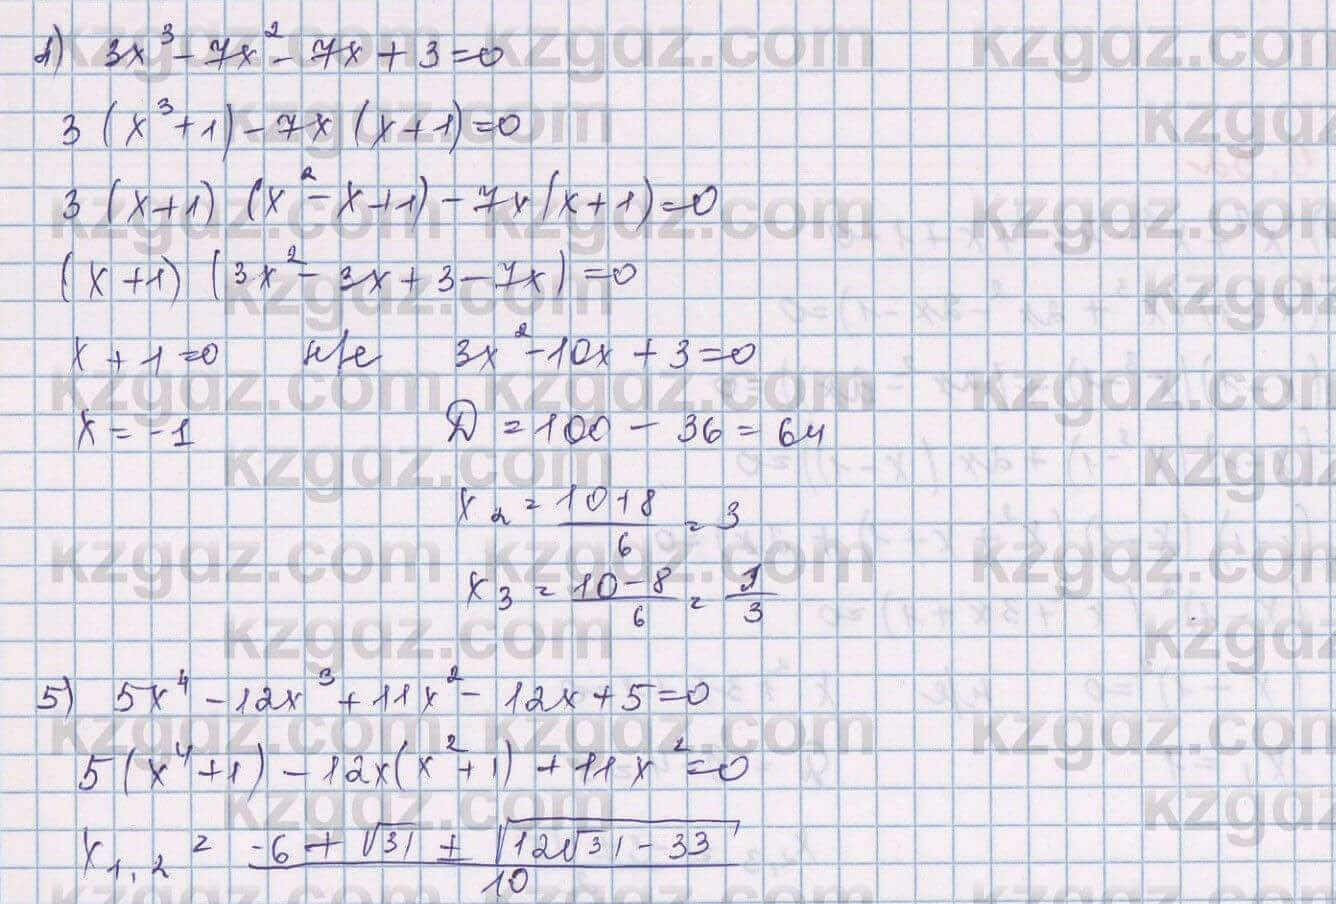 1) 3x³ - 7x² - 7x + 3 = 0
3 (x³ + 1) - 7x (x + 1) = 0
3 (x + 1) (x² - x + 1) - 7x (x + 1) = 0
(x + 1) (3x² - 3x + 3 - 7x) = 0
x + 1 = 0 н/е 3x² - 10x + 3 = 0
x = -1 D = 100 - 36 = 64
x₂ = (10 + 8)/6 = 3
x₃ = (10 - 8)/6 = 1/3
5) 5x⁴ - 12x³ + 11x² - 12x + 5 = 0
5 (x⁴ + 1) - 12x (x² + 1) + 11x² = 0
x₁,₂ = (-6 + √31 ± √(12√31 - 33))/10
kzgdz.com